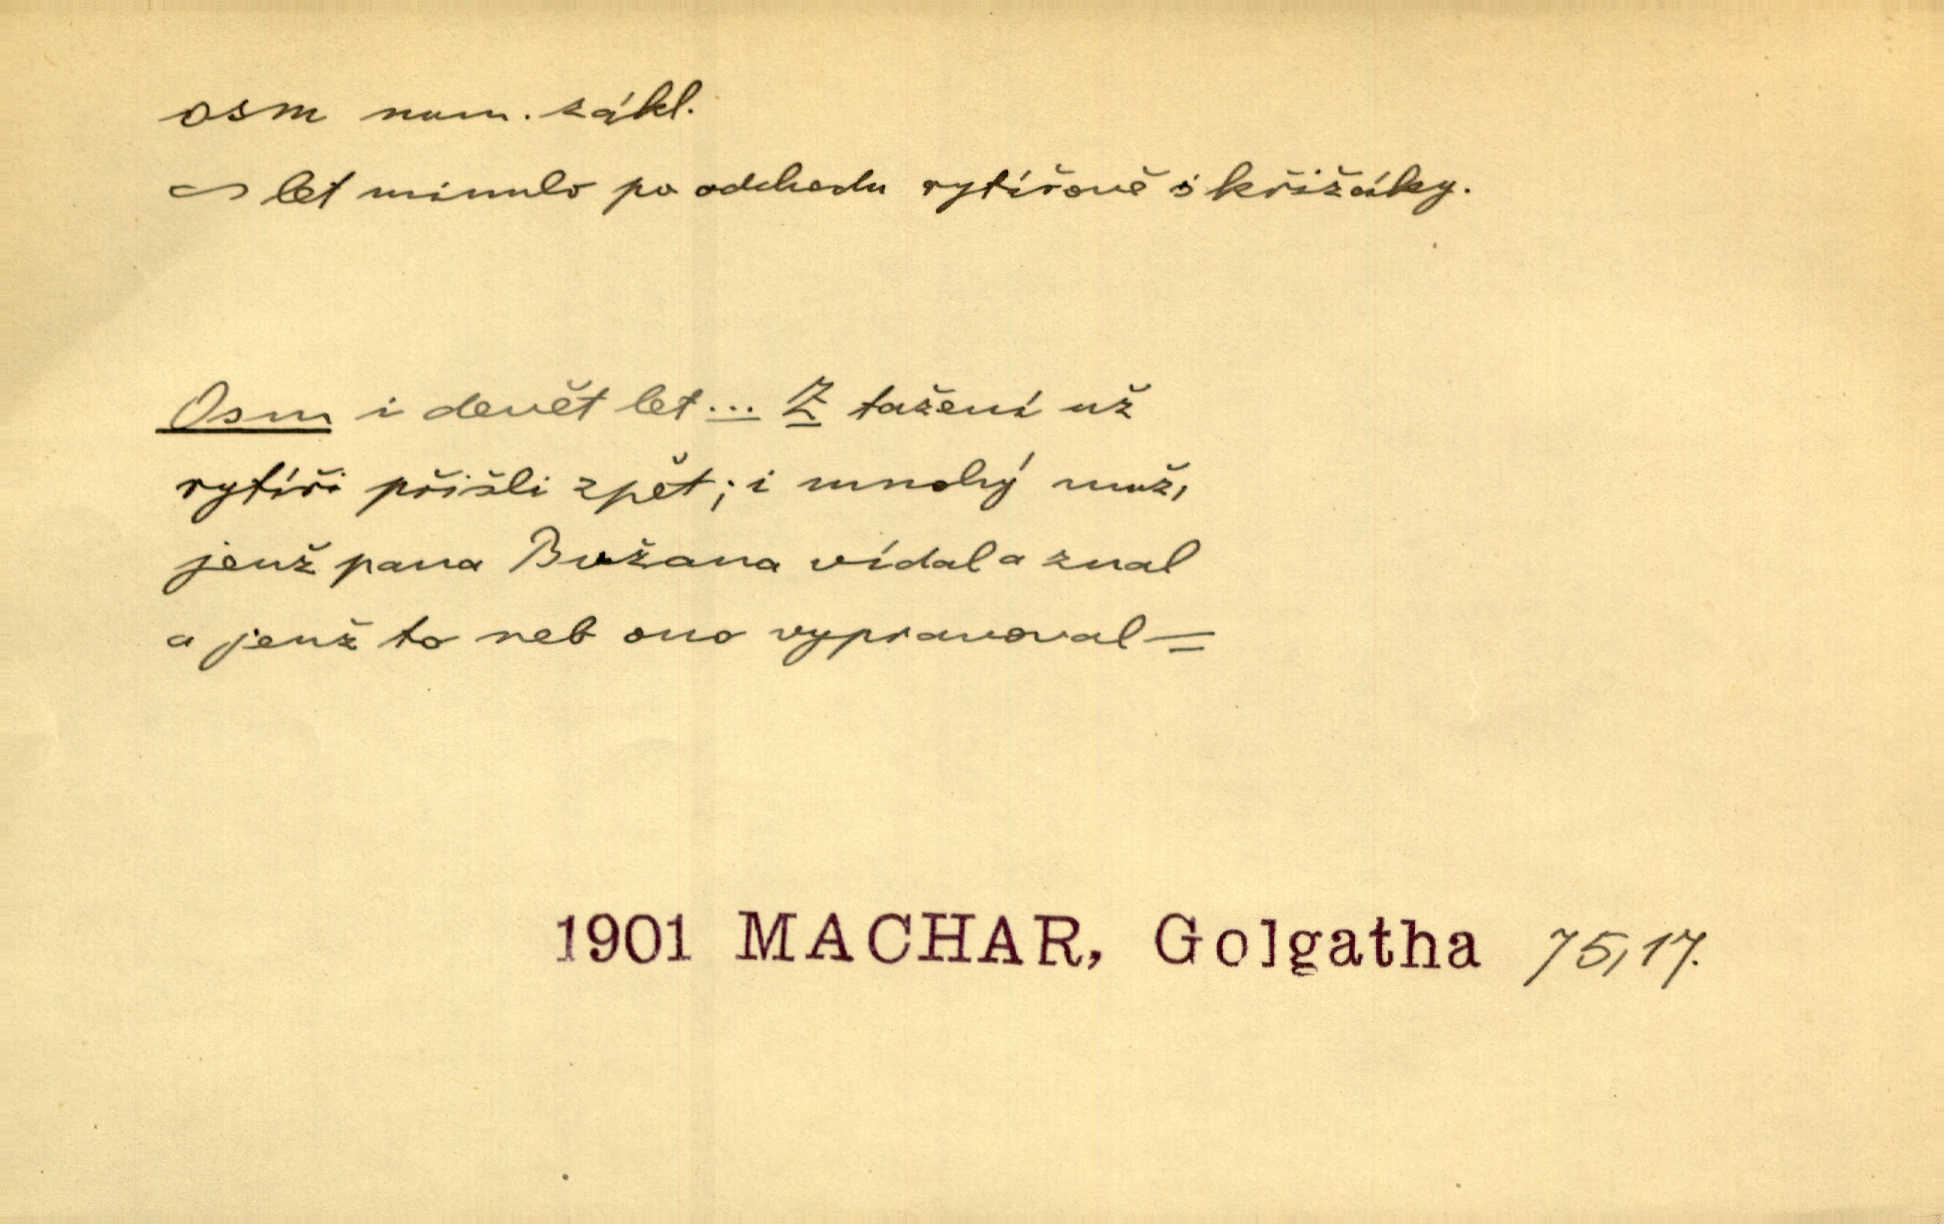 osm num. zákl.
~ let minulo po odchodu rytířově s křižáky.
Osm i devět let ... Z tažení už
rytíři přišli zpět; i mnohý muž,
jenž pana Božana vídal a znal
a jenž to neb ono vypravoval —
1901 MACHAR, Golgatha 75,17.